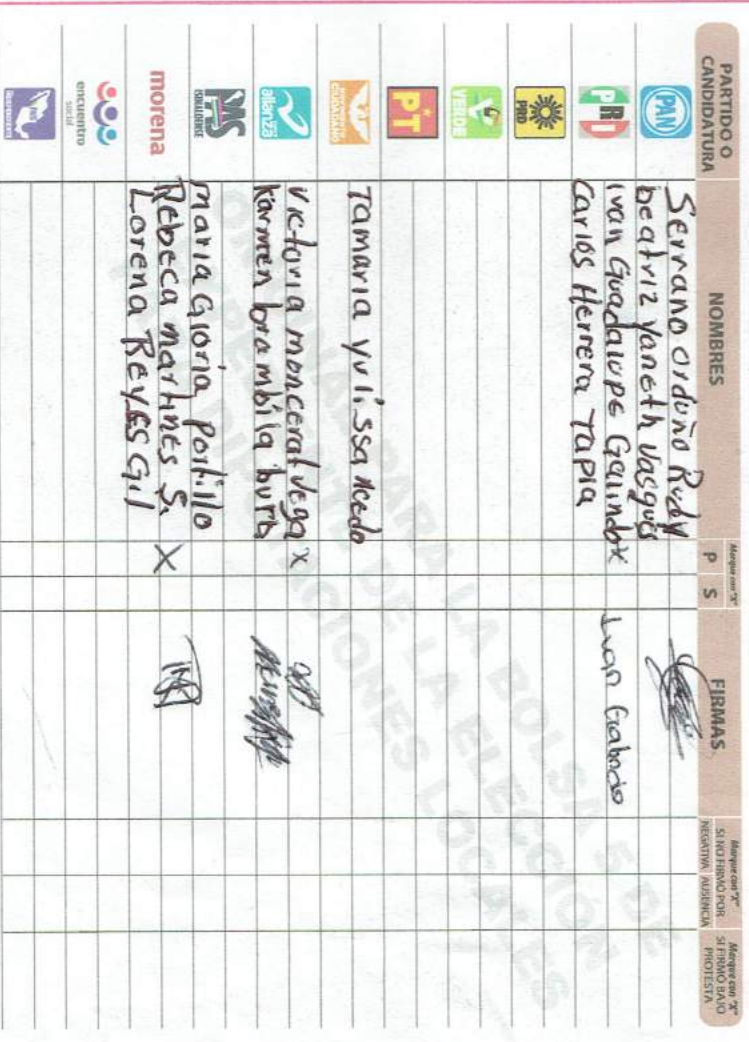 PARTIDO O CANDIDATURA
NOMBRES
Marque con "X"
P S
FIRMAS
Marque con "X" SI NO FIRMÓ POR
NEGATIVA AUSENCIA
Marque con "X" SI FIRMÓ BAJO PROTESTA
PAN
Serrano orduño Rudy
beatriz yaneth vasques
PRI
Ivan Guadalupe Galindo X
Ivan Galindo
carlos Herrera Tapia
PRD
VERDE
PT
CIUDADANO
Tamaria yulissa Acedo
alianza
victoria moncerat vega X
Karmen brambila
PAS
SINALOENSE
maria Gloria Portillo
morena
Rebeca martines S. X
Lorena Reyes Gil
encuentro
social
ORIGINAL PARA LA BOLSA 5 DE
EXPEDIENTE DE LA ELECCIÓN
DIPUTACIONES LOCALES